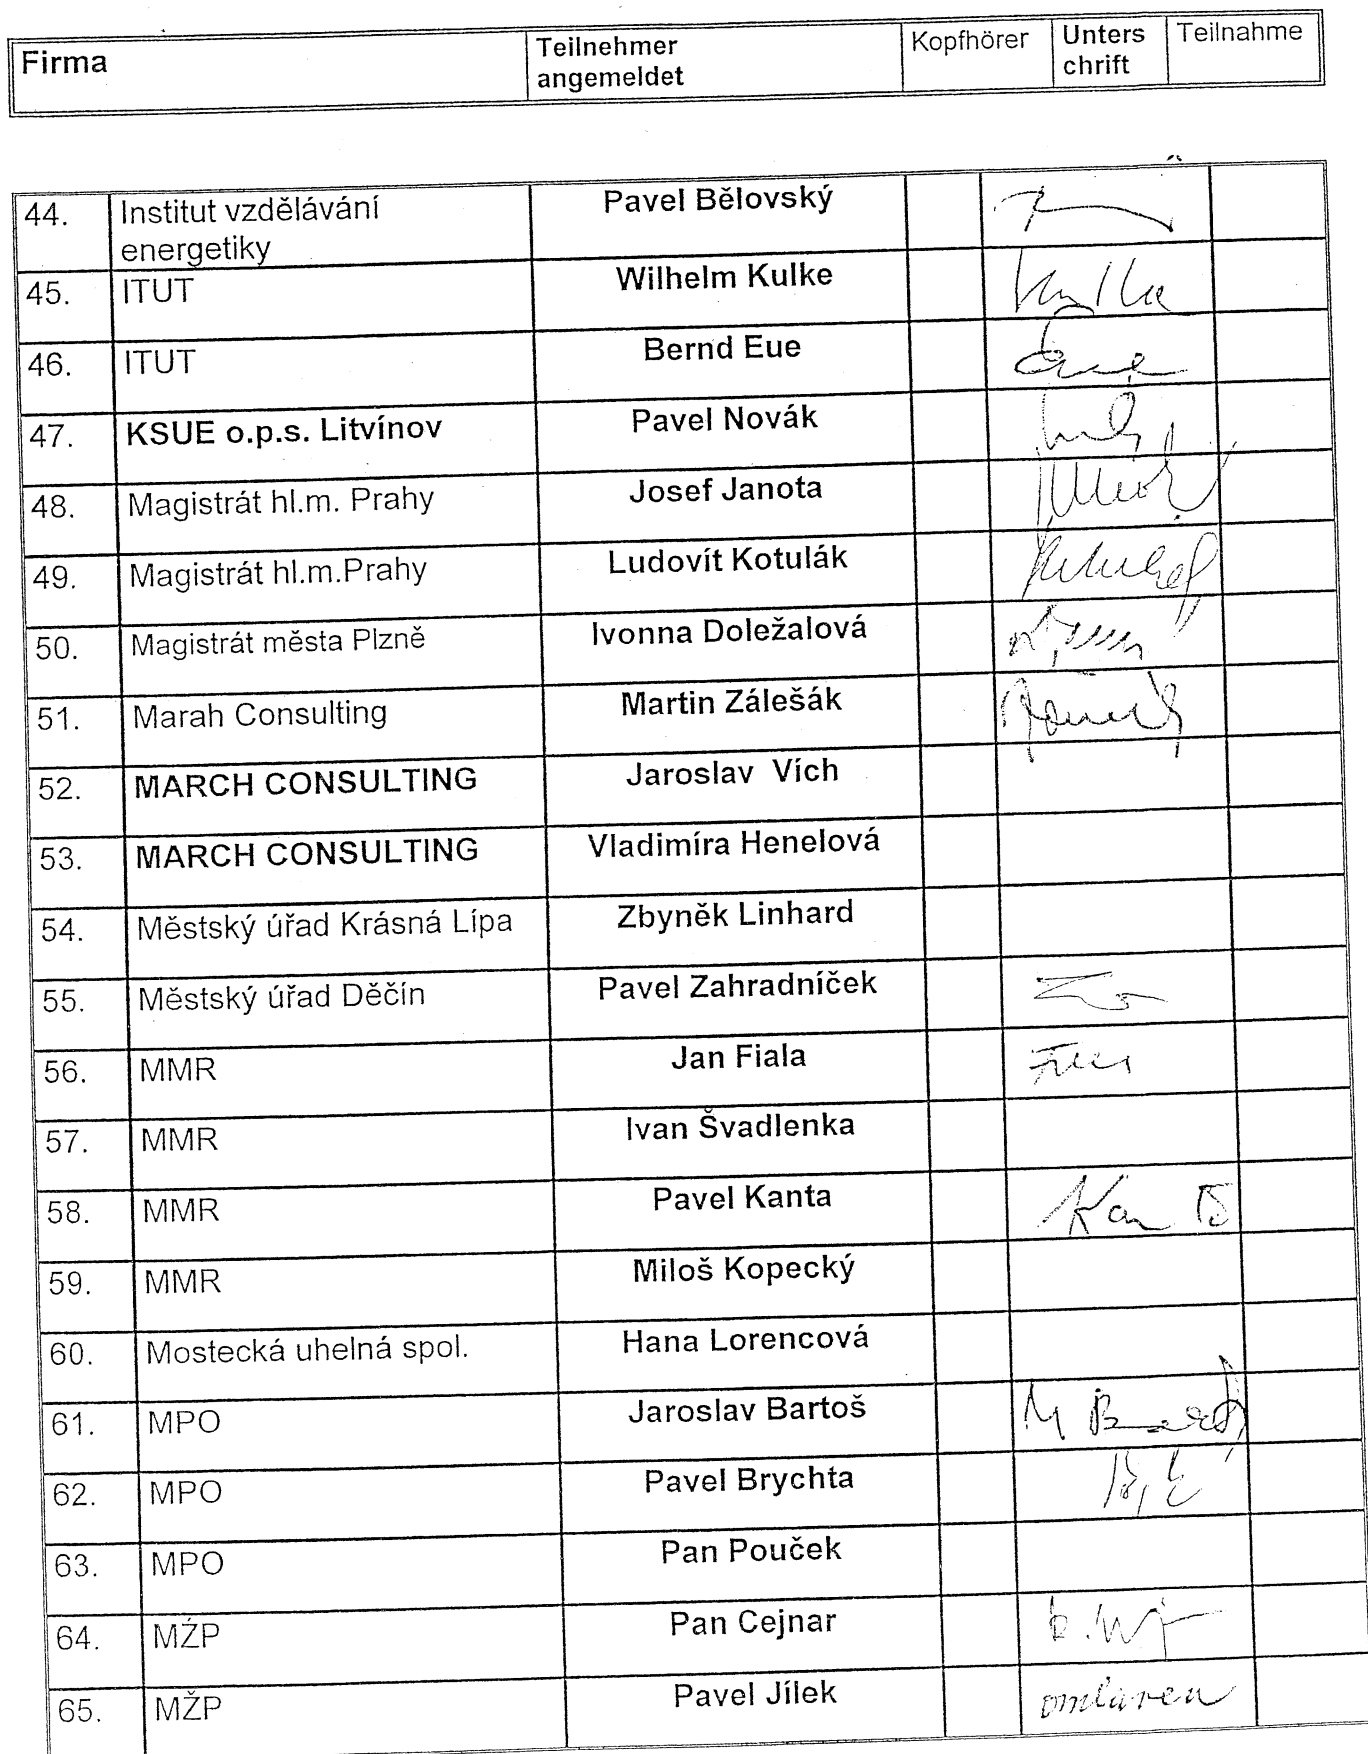 Firma Teilnehmer Kopfhörer Unters Teilnahme
angemeldet chrift
44. Institut vzdělávání Pavel Bělovský
energetiky
45. ITUT Wilhelm Kulke Kulke
46. ITUT Bernd Eue Eue
47. KSUE o.p.s. Litvínov Pavel Novák
48. Magistrát hl.m. Prahy Josef Janota
49. Magistrát hl.m.Prahy Ludovít Kotulák
50. Magistrát města Plzně Ivonna Doležalová
51. Marah Consulting Martin Zálešák
52. MARCH CONSULTING Jaroslav Vích
53. MARCH CONSULTING Vladimíra Henelová
54. Městský úřad Krásná Lípa Zbyněk Linhard
55. Městský úřad Děčín Pavel Zahradníček
56. MMR Jan Fiala
57. MMR Ivan Švadlenka
58. MMR Pavel Kanta
59. MMR Miloš Kopecký
60. Mostecká uhelná spol. Hana Lorencová
61. MPO Jaroslav Bartoš
62. MPO Pavel Brychta
63. MPO Pan Pouček
64. MŽP Pan Cejnar
65. MŽP Pavel Jílek omluven